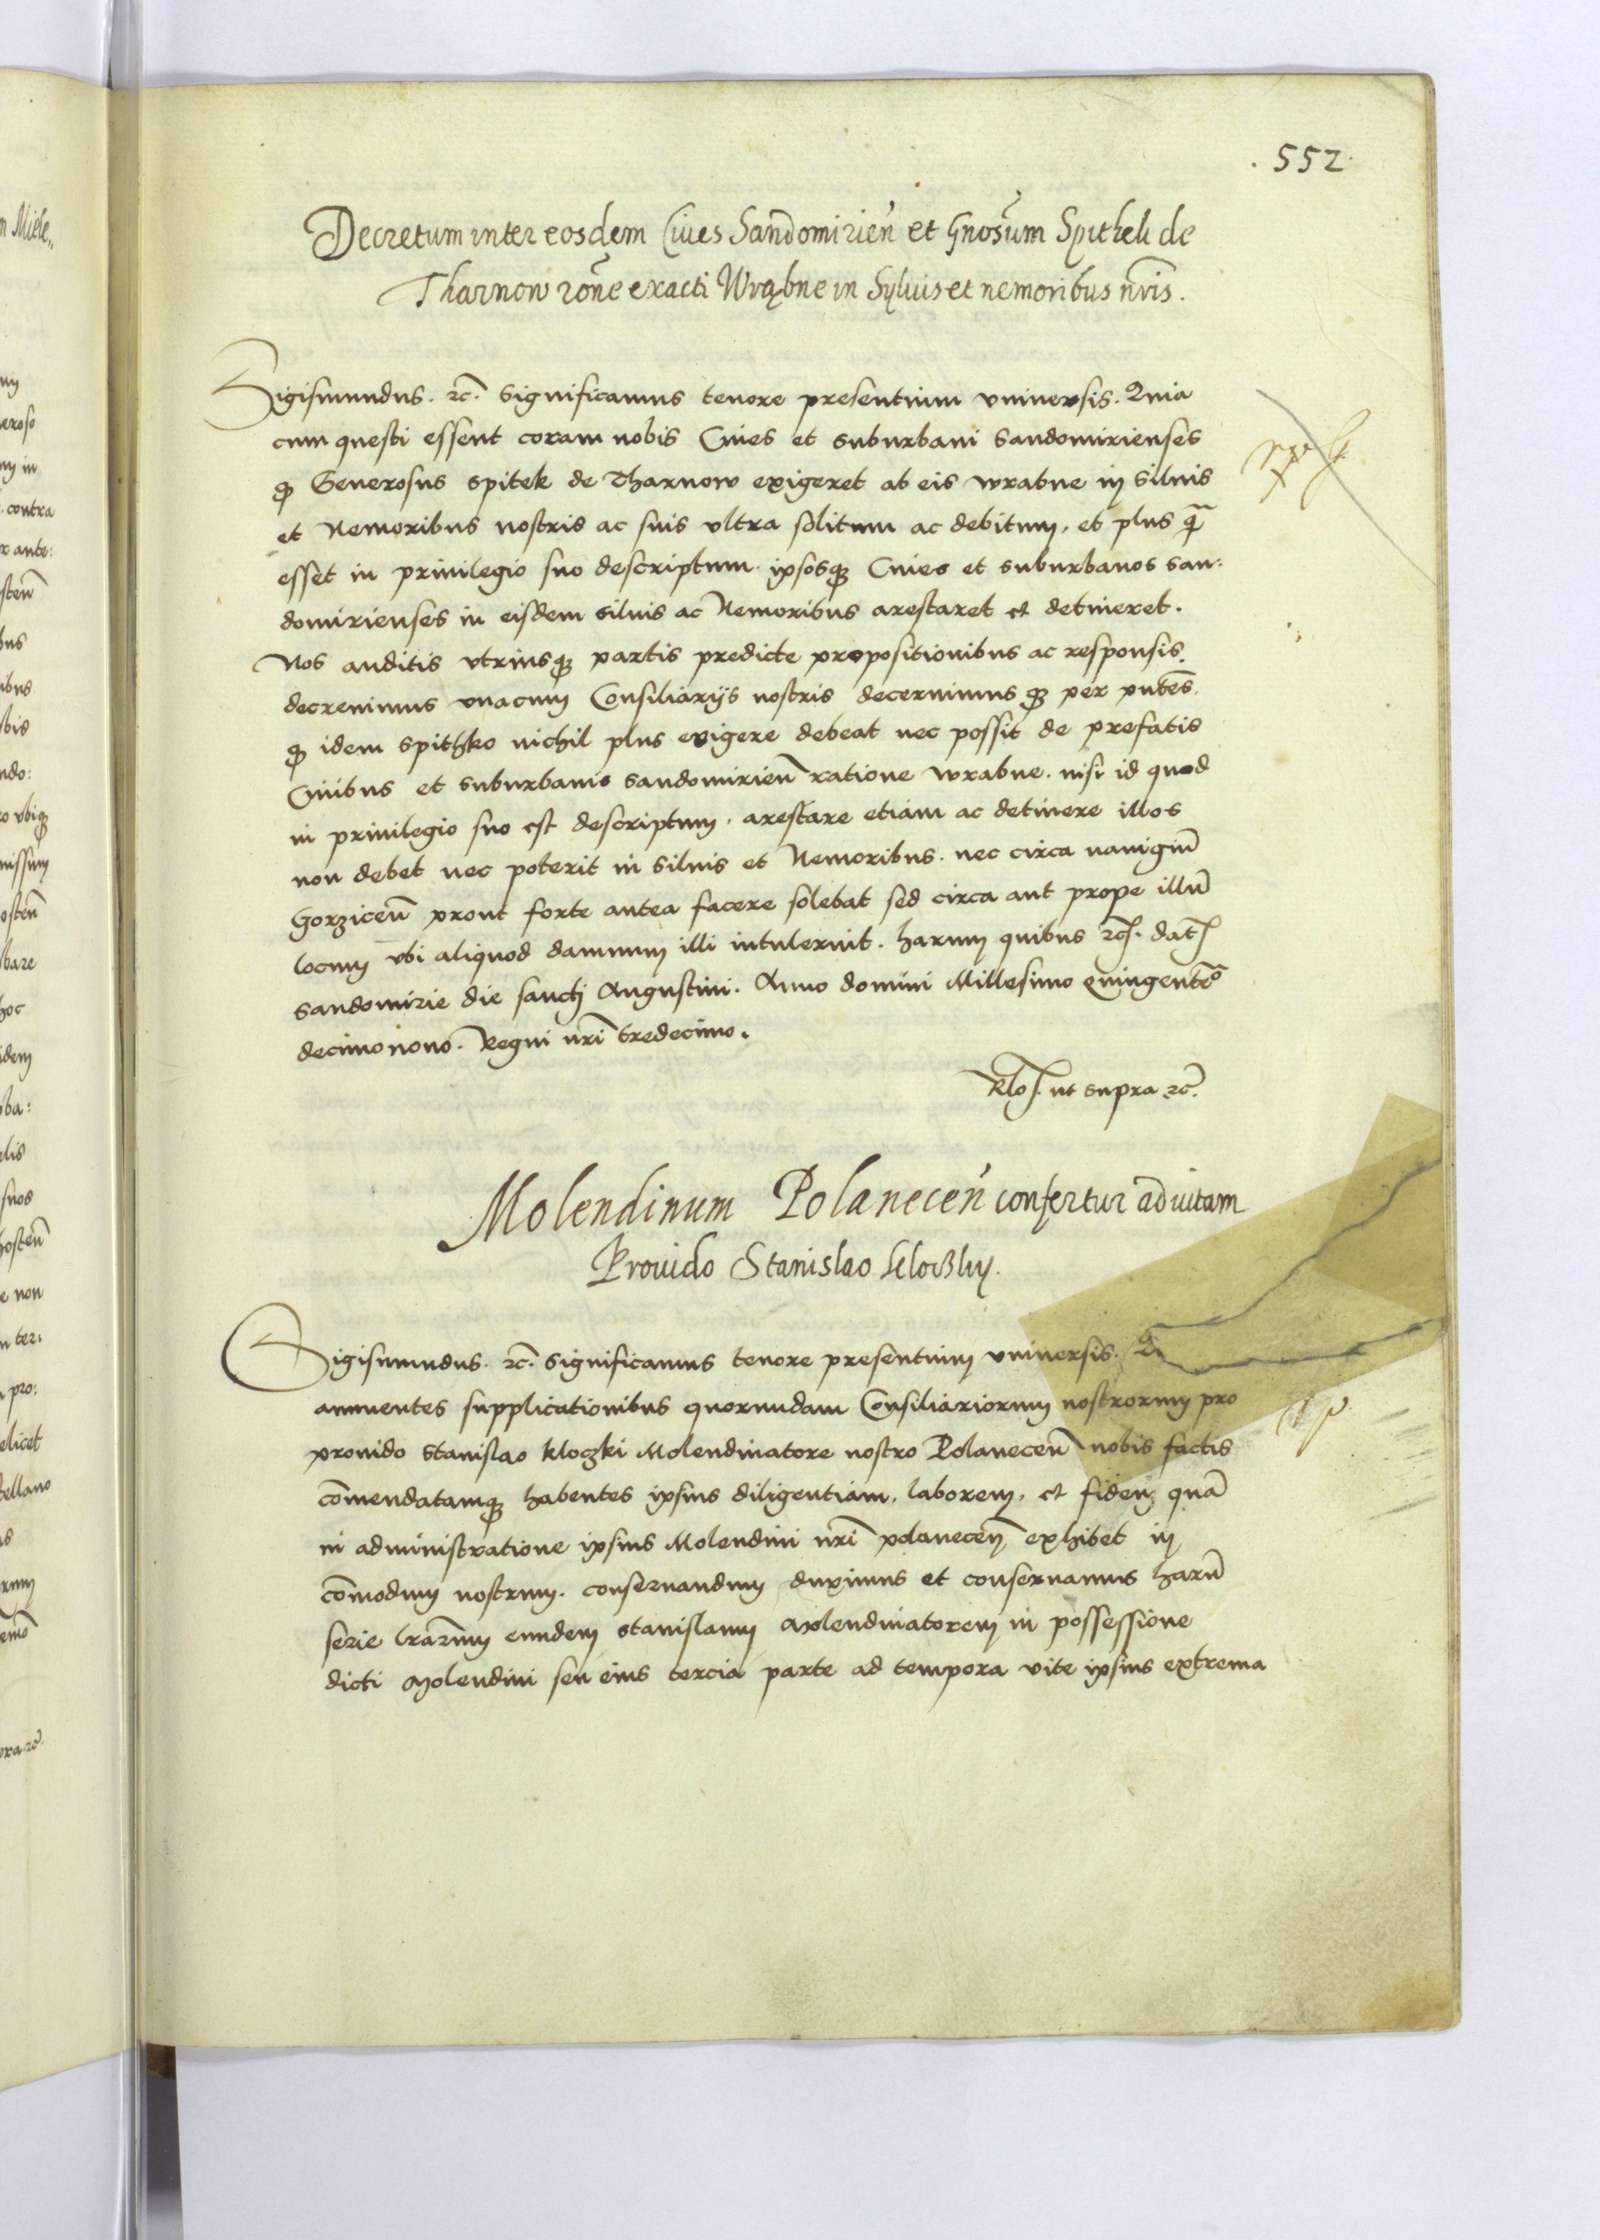 . 552.
Decretum inter eosdem Ciues Sandomirieñ et Gnosũm Spithek de
Tharnow rõne exacti Wrąbne in Syluis et nemoribus nr̃is.
Sigismundus. ꝛc̃. significamus tenore presentium vniuersis. Quia
cum questi essent coram nobis Ciues et suburbani sandomirienses
ꝙ Generosus spitek de Tharnow exigeret ab eis wrabne in siluis
et Nemoribus nostris ac suis vltra solitum ac debitum. et plus q̃
esset in priuilegio suo descriptum. ipsosqꝫ Ciues et suburbanos san:
domirienses in eisdem siluis ac Nemoribus arestaret et detineret.
Nos auditis vtriusqꝫ partis predicte propositionibus ac responsis.
decreuimus vnacum Consiliarijs nostris decernimusqꝫ per pnt̃es.
ꝙ idem spithko nichil plus exigere debeat nec possit de prefatis
Ciuibus et suburbanis sandomirieñ ratione wrabne. nisi id quod
in priuilegio suo est descriptum. arestare etiam ac detinere illos
non debet nec poterit in siluis et Nemoribus. nec circa nauigiũ
Gorziceñ prout forte antea facere solebat sed circa aut prope illũ
locum vbi aliquod damnum illi intulerint. harum quibus ꝛc̃. dat̃
sandomirie die sancti Augustini. Anno domini Millesimo Quingentẽo
decimonono. Regni nr̃i tredecimo.
Rlõ. ut supra ꝛc̃.
Molendinum Polaneceñ confertur ad uitam
Prouido Stanislao
Sigismundus. ꝛc̃. significamus tenore presentium vniuersis.
annuentes supplicationibus quorundam Consiliariorum nostrorum pro
prouido stanislao kloczki Molendinatore nostro Polaneceñ nobis factis
com̃endatamqꝫ habentes ipsius diligentiam, laborem, et fidem quã
in administratione ipsius Molendini nr̃i polaneceñ exhibet in
com̃odum nostrum. conseruandum duximus et conseruamus harũ
serie lr̃arum eundem stanislaum Molendinatorem in possessione
dicti Molendini seu eius tercia parte ad tempora vite ipsius extrema